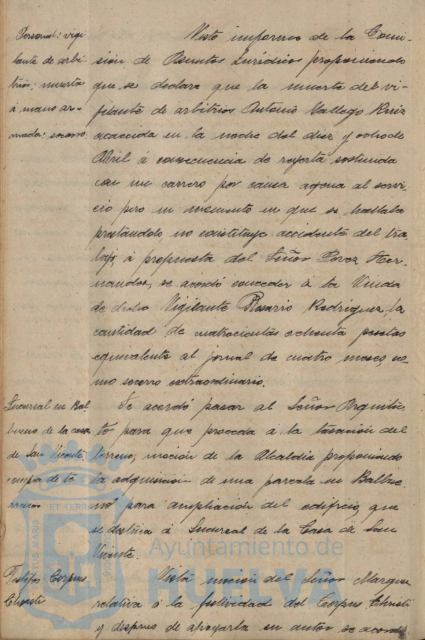 Personal: vigi-
lante de arbi-
trios; muerte
á mano ar-
mada: socorro.
Visto informe de la Comi-
sión de Asuntos Jurídicos proponiendo
que se declare que la muerte del vi-
gilante de arbitrios Antonio Gallego Ruiz
acaecida en la noche del diez y ocho de
Abril á consecuencia de reyerta sostenida
con un carrero por causa agena al servi-
cio pero en momento en que se hallaba
prestandolo, no constituye accidente del tra-
bajo, á propuesta del Señor Perez Her-
nandez, se acordó conceder á la Viuda
de dicho Vigilante Rosario Rodriguez, la
cantidad de cuatrocientas ochenta pesetas
equivalente al jornal de cuatro meses, co-
mo socorro extraordinario.
Sucursal en Bal-
bueno de la casa
de San Vicente
compra de te-
rreno
Se acordó pasar al Señor Arquitec-
to para que proceda a la tasación del
terreno, moción de la Alcaldía proponiendo
la adquisición de una parcela en Balbue-
no para ampliación del edificio que
se destina á Sucursal de la Casa de San
Vicente.
Festejos Corpus
Christi
Vista moción del Señor Marquez
relativa á la festividad del Corpus Christi
y despues de apoyarla su autor se acordó
Ayuntamiento de
HUELVA